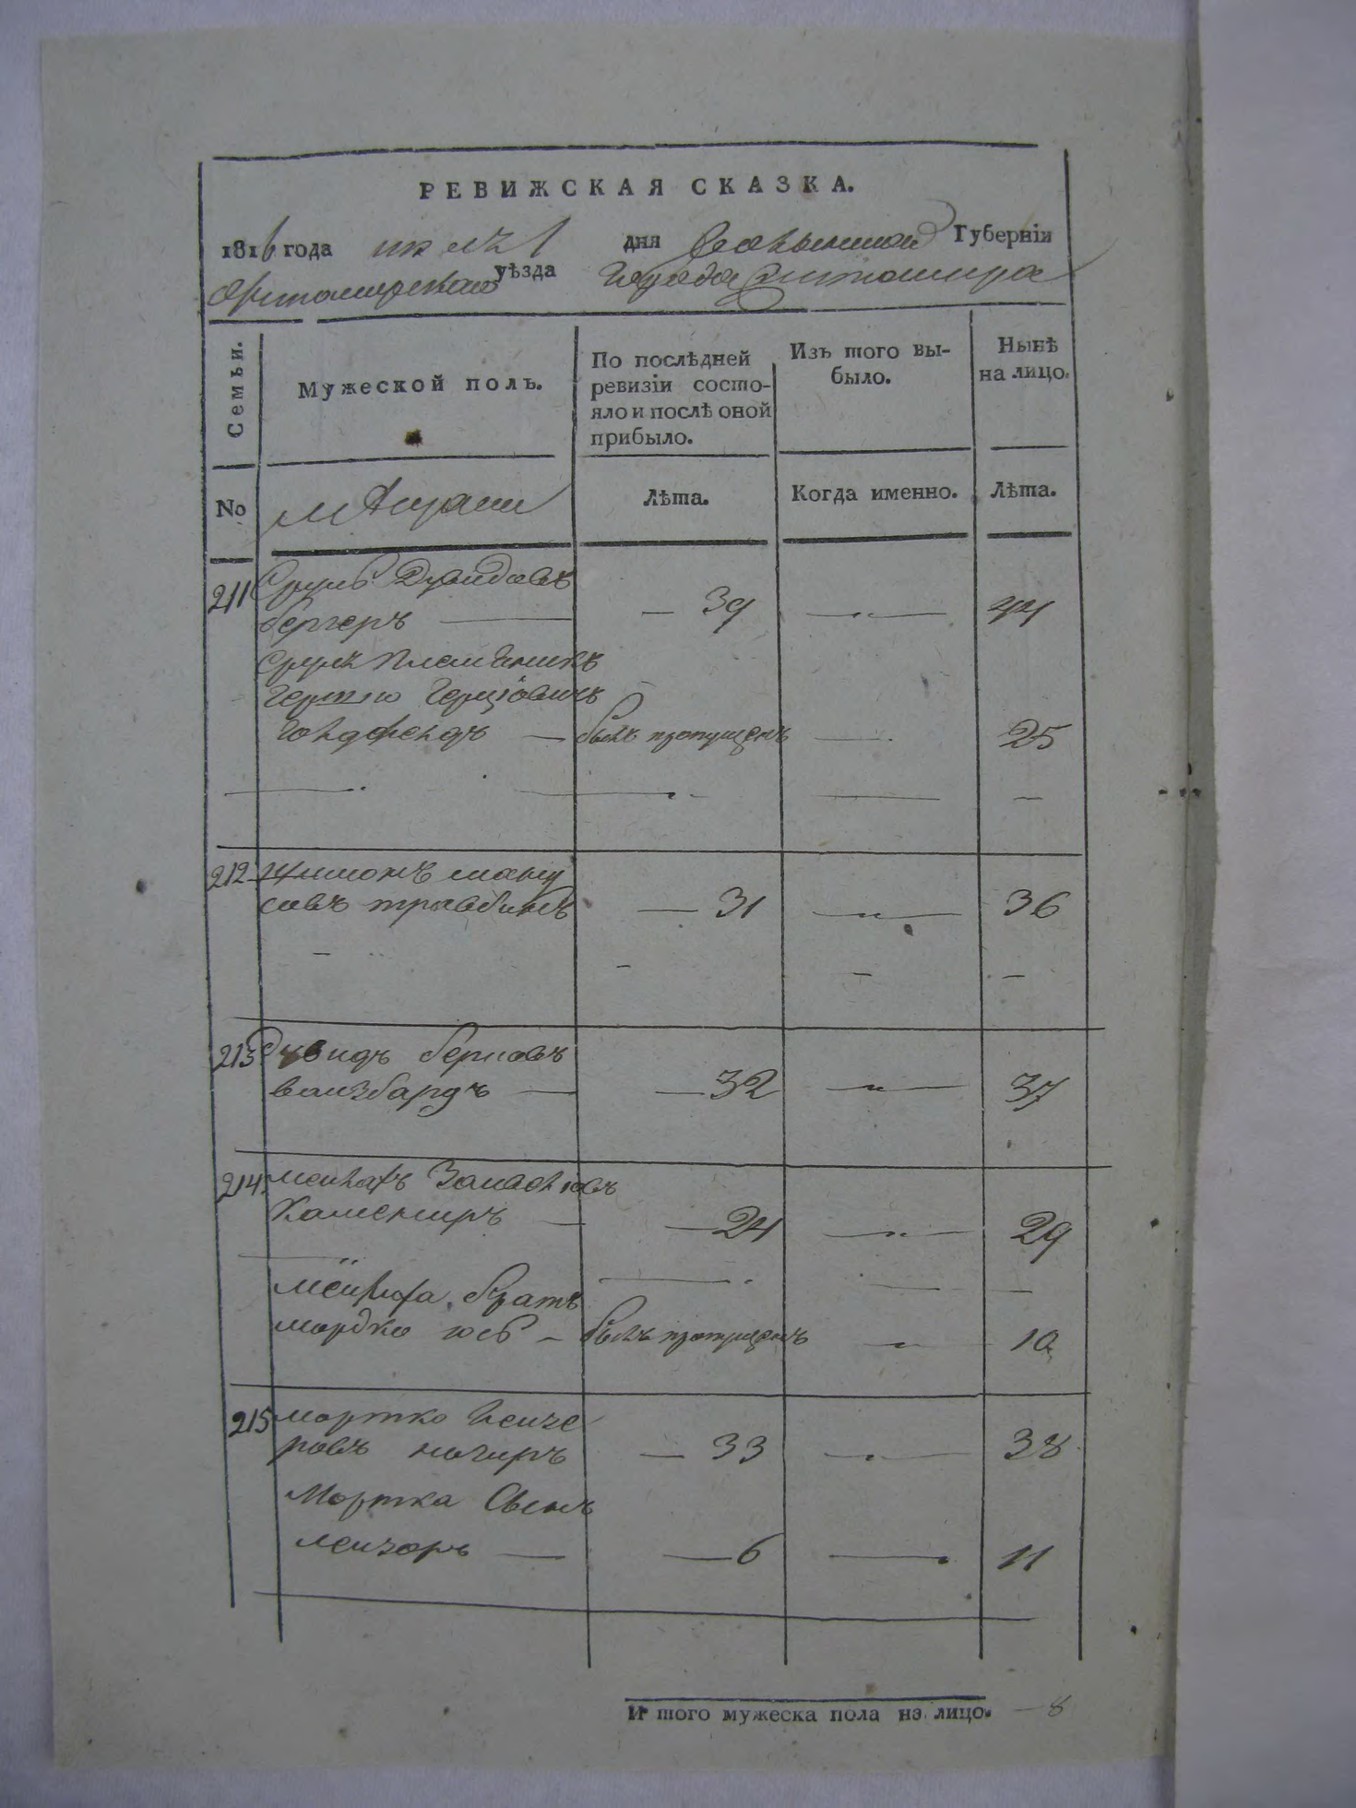 РЕВИЖСКАЯ СКАЗКА.
1816 года июля 1 дня Волынской Губерніи
Житомирскаго уѣзда Города Житомира
Семьи.
Мужеской полъ.
По послѣдней
ревизіи состо-
яло и послѣ оной
прибыло.
Изъ того вы-
было.
Нынѣ
на лицо.
No
Мещане
Лѣта.
Когда именно.
Лѣта.
211 Сруль Дувидовъ
бергеръ — 39 — " — 44
Сруля племѣникъ
Гершко
— былъ пропущенъ — 25
212
31 — " — 36
213 Дувидъ берковъ
вайзбардъ — 32 — " — 37
214
— 24 — " — 29
братъ
мордко — былъ пропущенъ — 10
215 мортко
ровъ — 33 — 38
Мортка Сынъ
лейзоръ — 6 — 11
Итого мужеска пола на лицо. — 8